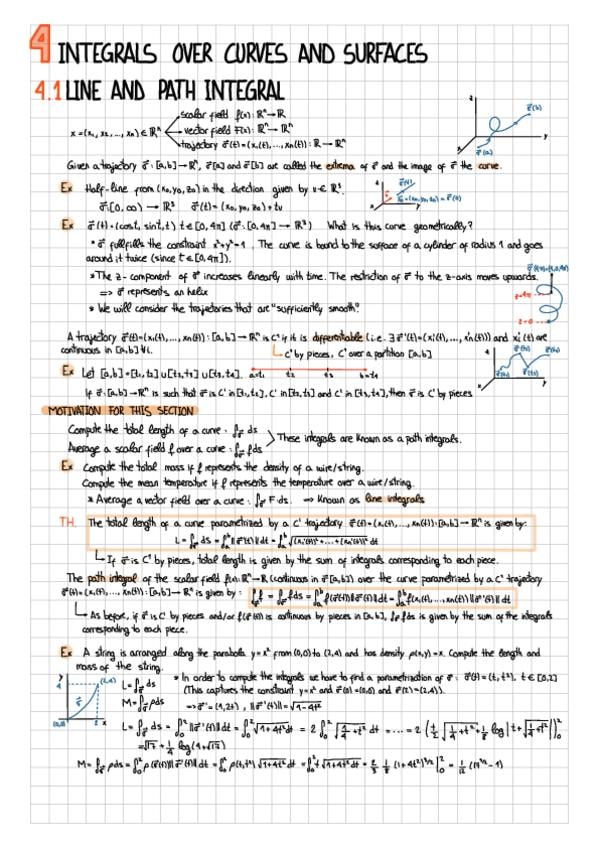 4 INTEGRALS OVER CURVES AND SURFACES
4.1 LINE AND PATH INTEGRAL
scalar field f(x): ℝⁿ→ℝ
x = (x₁, x₂, ..., xₙ) ∈ ℝⁿ vector field F(x): ℝⁿ→ℝⁿ
trajectory σ⃗(t) = (x₁(t), ..., xₙ(t)): ℝ→ℝⁿ
z
σ⃗(b)
y
σ⃗(a)
x
Given a trajectory σ⃗: [a,b]→ℝⁿ, σ⃗(a) and σ⃗(b) are called the extrema of σ⃗ and the image of σ⃗ the curve.
Ex Half-line from (x₀, y₀, z₀) in the direction given by v ∈ ℝ³.
σ⃗: [0, ∞) → ℝ³ σ⃗(t) = (x₀, y₀, z₀) + tv
Ex σ⃗(t) = (cost, sint, t) t ∈ [0, 4π] (σ⃗: [0, 4π] → ℝ³) What is this curve geometrically?
* σ⃗ fullfills the constraint x²+y²=1. The curve is bound to the surface of a cylinder of radius 1 and goes
around it twice (since t ∈ [0, 4π]).
* The z-component of σ⃗ increases linearly with time. The restriction of σ⃗ to the z-axis moves upwards.
=> σ⃗ represents an helix
z=4π
z=0
* We will consider the trajectories that are "sufficiently smooth".
A trajectory σ⃗(t) = (x₁(t), ..., xₙ(t)): [a,b]→ℝⁿ is C¹ if it is differentiable (i.e. ∃ σ⃗'(t) = (x₁'(t), ..., xₙ'(t))) and xᵢ'(t) are
continuous in [a,b] ∀i.
C¹ by pieces, C¹ over a partition [a,b]
Ex Let [a,b] = [t₁, t₂] ∪ [t₂, t₃] ∪ [t₃, t₄]. a=t₁ t₂ t₃ b=t₄
If σ⃗: [a,b]→ℝⁿ is such that σ⃗ is C¹ in [t₁, t₂], C¹ in [t₂, t₃] and C¹ in [t₃, t₄], then σ⃗ is C¹ by pieces
MOTIVATION FOR THIS SECTION
Compute the total length of a curve: ∫σ⃗ ds
Average a scalar field f over a curve: ∫σ⃗ f ds
These integrals are known as a path integrals.
Ex Compute the total mass if f represents the density of a wire/string.
Compute the mean temperature if f represents the temperature over a wire/string.
* Average a vector field over a curve: ∫σ⃗ F·ds. => Known as line integrals
TH. The total length of a curve parametrized by a C¹ trajectory σ⃗(t) = (x₁(t), ..., xₙ(t)): [a,b]→ℝⁿ is given by:
L = ∫σ⃗ ds = ∫ₐᵇ ||σ⃗'(t)|| dt = ∫ₐᵇ √((x₁'(t))² + ... + (xₙ'(t))²) dt
If σ⃗ is C¹ by pieces, total length is given by the sum of integrals corresponding to each piece.
The path integral of the scalar field f(x): ℝⁿ→ℝ (continuous in σ⃗[a,b]) over the curve parametrized by a C¹ trajectory
σ⃗(t) = (x₁(t), ..., xₙ(t)): [a,b]→ℝⁿ is given by: ∫σ⃗ f = ∫σ⃗ f ds = ∫ₐᵇ f(σ⃗(t)) ||σ⃗'(t)|| dt = ∫ₐᵇ f(x₁(t), ..., xₙ(t)) ||σ⃗'(t)|| dt
As before, if σ⃗ is C¹ by pieces and/or f(σ⃗(t)) is continuous by pieces in [a,b], ∫σ⃗ f ds is given by the sum of the integrals
corresponding to each piece.
Ex A string is arranged along the parabola y=x² from (0,0) to (2,4) and has density ρ(x,y)=x. Compute the length and
mass of the string.
y
4
(2,4)
σ⃗
(0,0)
2
x
L = ∫σ⃗ ds
M = ∫σ⃗ ρ ds
* In order to compute the integrals we have to find a parametrization of σ⃗: σ⃗(t) = (t, t²), t ∈ [0,2]
(This captures the constraint y=x² and σ⃗(0)=(0,0) and σ⃗(2)=(2,4)).
=> σ⃗' = (1, 2t), ||σ⃗'(t)|| = √(1+4t²)
L = ∫σ⃗ ds = ∫₀² ||σ⃗'(t)|| dt = ∫₀² √(1+4t²) dt = 2 ∫₀² √(1/4 + t²) dt = ... = 2 (t/2 √(1/4 + t²) + 1/8 log |t + √(1/4 + t²)|)|₀²
= √17 + 1/4 log(4+√17)
M = ∫σ⃗ ρ ds = ∫₀² ρ(σ⃗(t)) ||σ⃗'(t)|| dt = ∫₀² ρ(t, t²) √(1+4t²) dt = ∫₀² t √(1+4t²) dt = 2/3 · 1/8 (1+4t²)^(3/2) |₀² = 1/12 (17^(3/2) − 1)